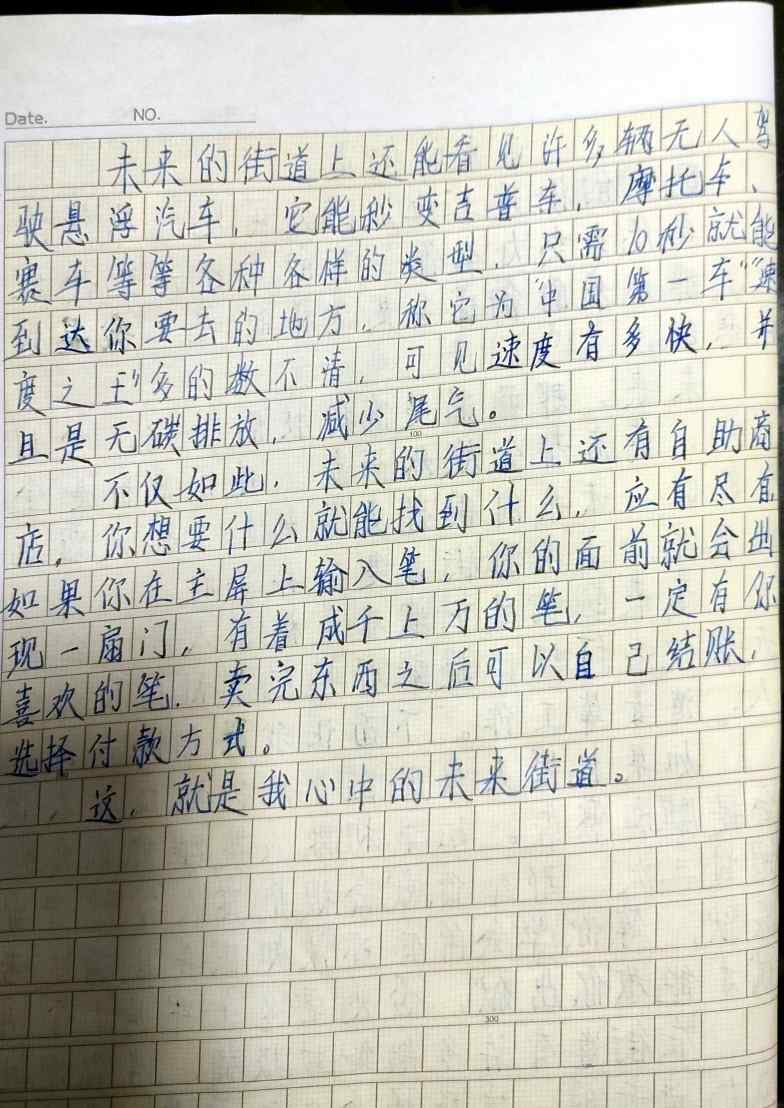 Date.    NO.
未来的街道上还能看见许多辆无人驾
驶悬浮汽车，它能秒变吉普车，摩托车、
赛车等等各种各样的类型，只需10秒就能
到达你要去的地方，称它为“中国第一车”“速
度之王”多的数不清，可见速度有多快，并
且是无碳排放，减少尾气。
100
不仅如此，未来的街道上还有自助商
店，你想要什么就能找到什么，应有尽有
如果你在主屏上输入笔，你的面前就会出
现一扇门，有着成千上万的笔，一定有你
喜欢的笔．卖完东西之后可以自己结账，
选择付款方式。
这，就是我心中的未来街道。
300